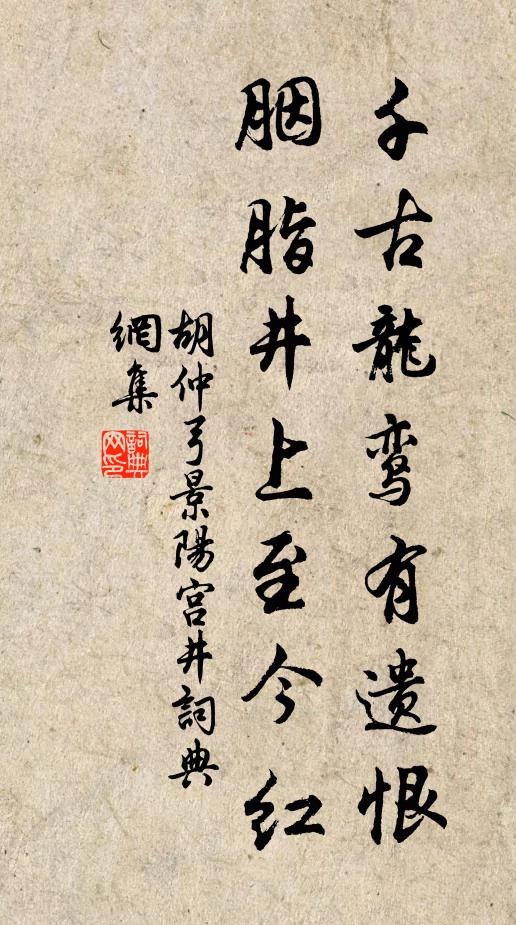 千古龍鸾有遗恨
胭脂井上至今红
胡仲弓景陽宫井詞典
網集
詞典网印